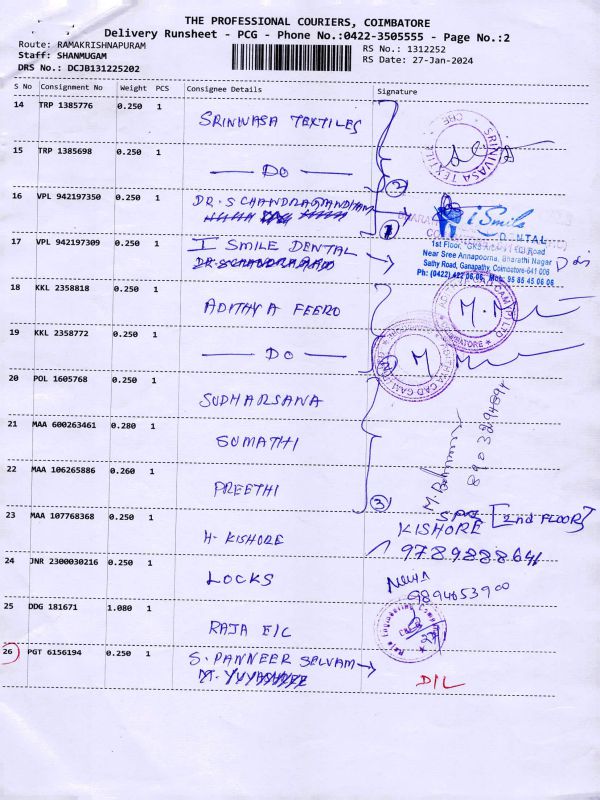 THE PROFESSIONAL COURIERS, COIMBATORE
Delivery Runsheet - PCG - Phone No.:0422-3505555 - Page No.:2
Route: RAMAKRISHNAPURAM
Staff: SHANMUGAM
DRS No.: DCJB131225202
RS No.: 1312252
RS Date: 27-Jan-2024
S No Consignment No Weight PCS Consignee Details Signature
14 TRP 1385776 0.250 1 SRINIVASA TEXTILES
15 TRP 1385698 0.250 1 — DO —
2
SRINIVASA TEXTILE
16 VPL 942197350 0.250 1 DR. S CHANDRAGANDHAM
1
17 VPL 942197309 0.250 1 I SMILE DENTAL
iSmile
DENTAL
1st Floor, GKS Road
Near Sree Annapoorna, Bharathi Nagar
Sathy Road, Ganapathy, Coimbatore-641 006
Ph: (0422) 422 06 06, Mob: 95 85 45 06 06
18 KKL 2358818 0.250 1 ADITHYA FEERO
19 KKL 2358772 0.250 1 — DO —
M. M
M
COIMBATORE
20 POL 1605768 0.250 1 SUDHARSANA
21 MAA 600263461 0.280 1 SUMATHI
22 MAA 106265886 0.260 1 PREETHI
3
8903294894
[2nd FLOOR]
23 MAA 107768368 0.250 1 H. KISHORE
KISHORE
9789888641
24 JNR 2300030216 0.250 1 LOCKS
9894053900
25 DDG 181671 1.080 1 RAJA E/C
Raja Engineering Company
26 PGT 6156194 0.250 1 S. PANNEER SELVAM →
D/L